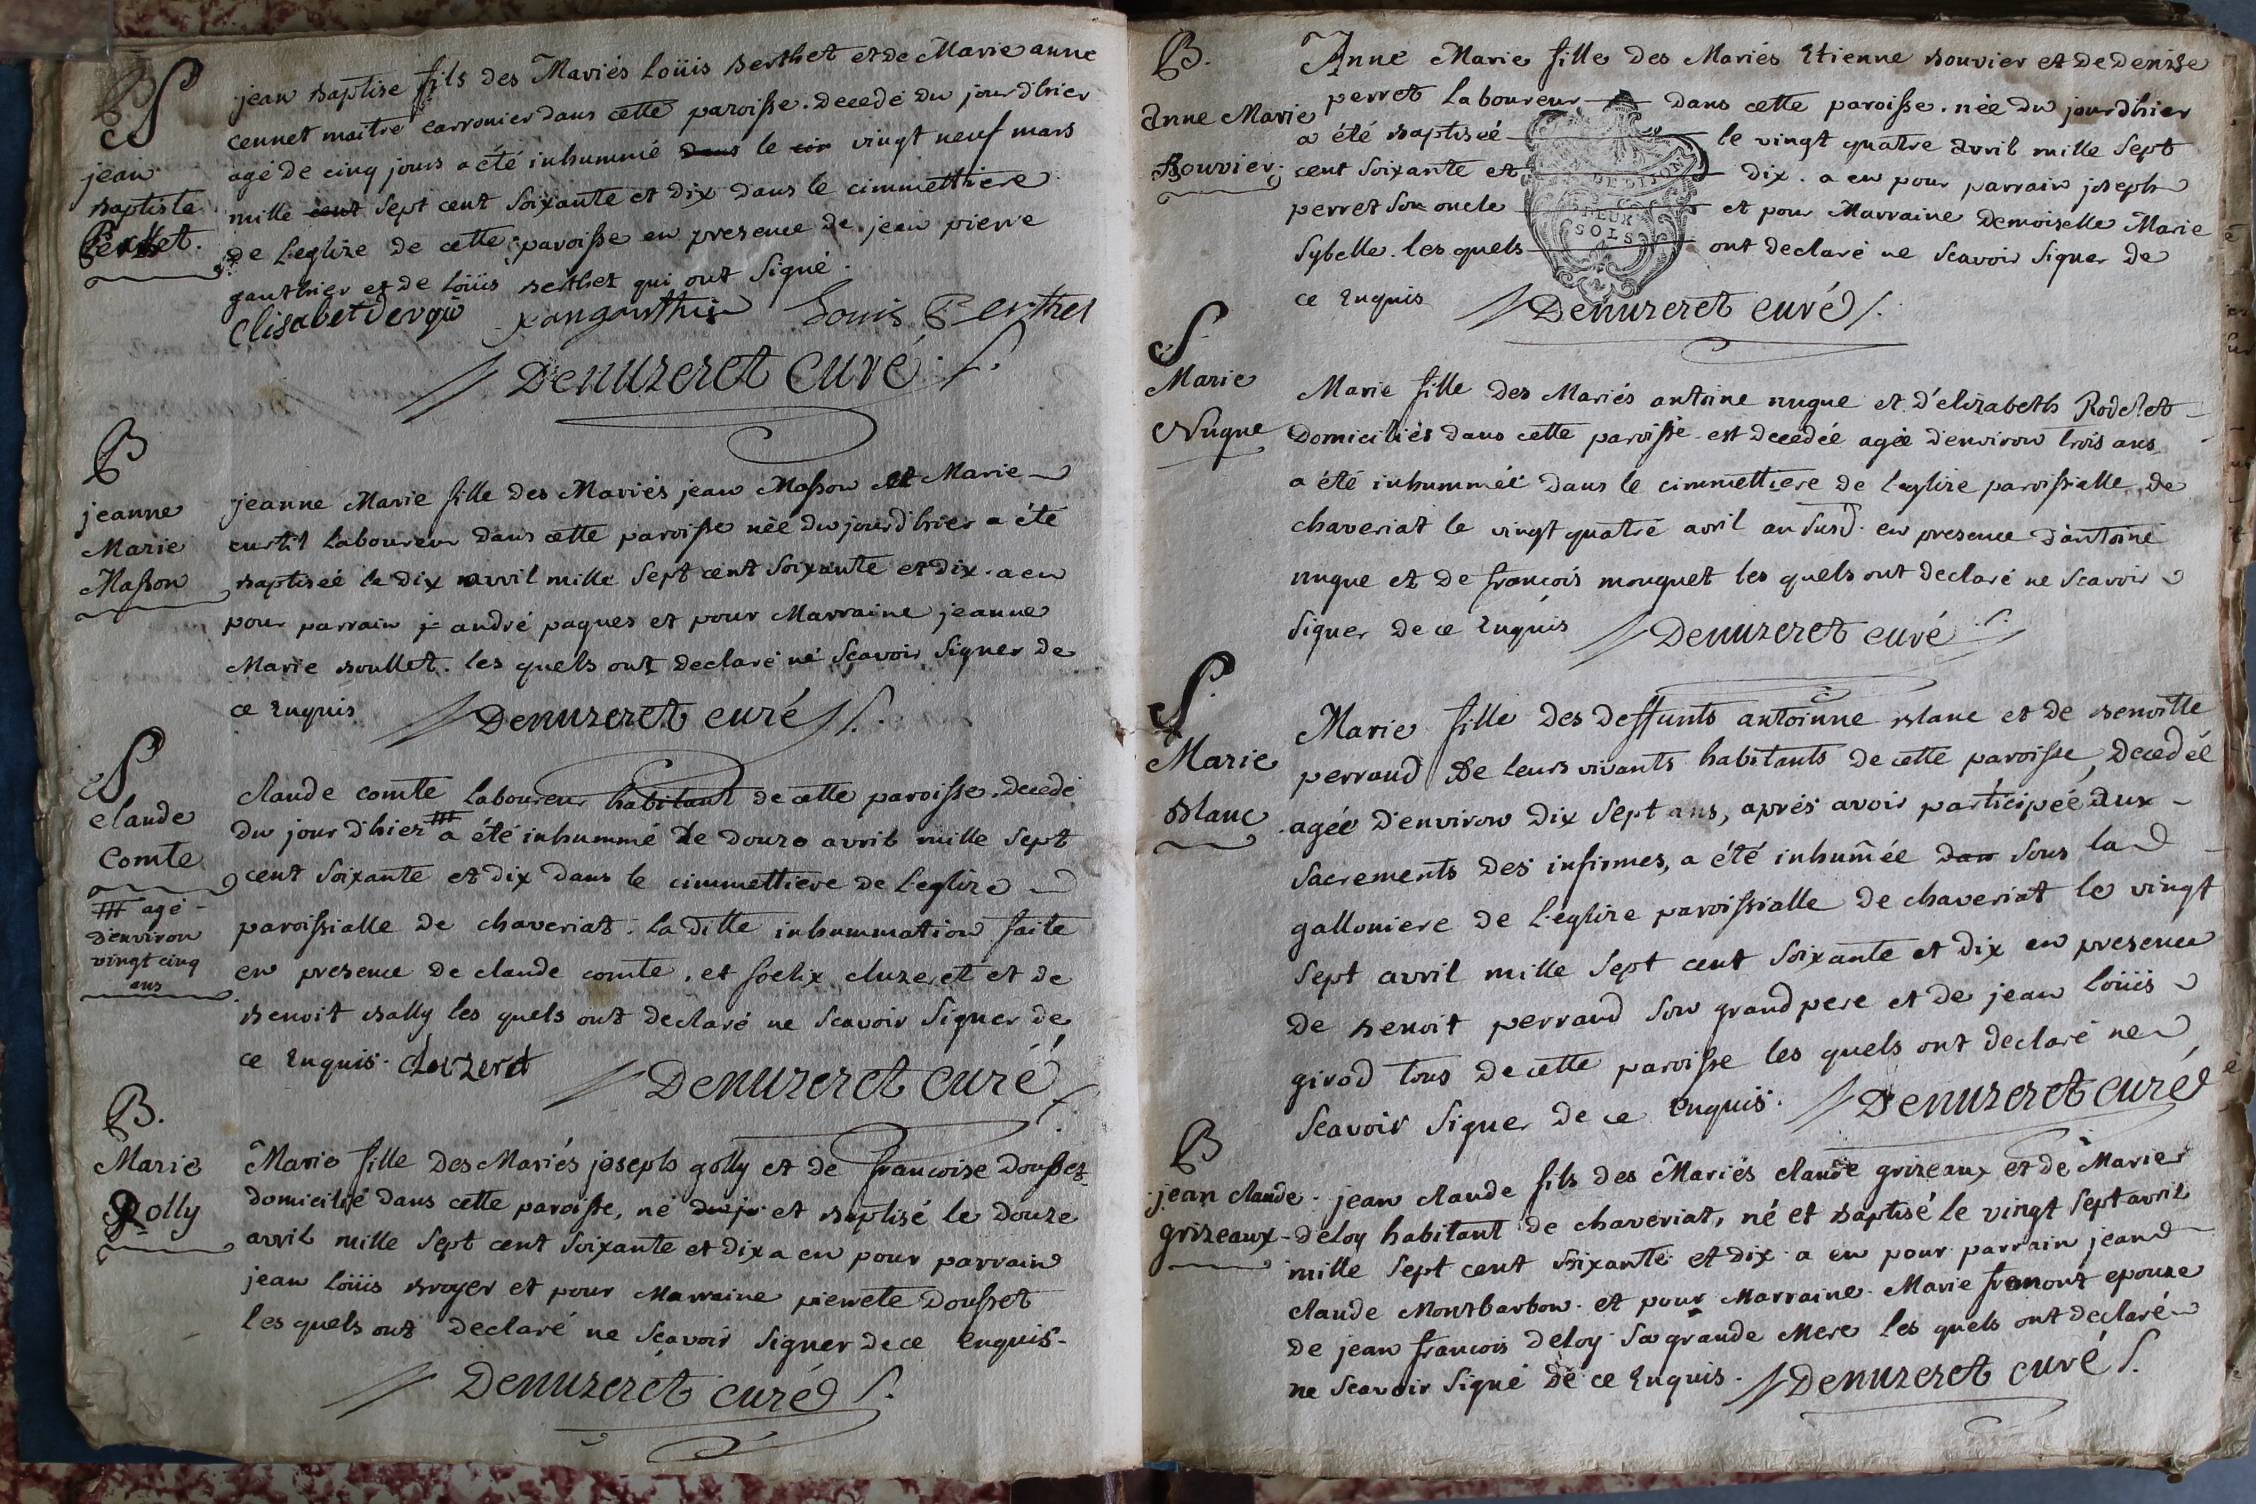 S
jean
Baptiste
Berthet.
jean Baptise fils des Mariés Loüis Berthet et de Marie anne
cennet maitre carronier dans cette paroisse. Decedé du jourdhier
agé de cinq jours a été inhummé dans le cin vingt neuf mars
mille cent sept cent soixante et dix dans le cimmettiere
de Leglize de cette paroisse en presence de jean pierre
gauthier et de Loüis Berthet qui ont signé.
Louis Berthet
Denuzeret curé
B
jeanne
Marie
Masson
jeanne Marie fille des Mariés jean Masson et Marie
curtil Laboureur dans cette paroisse née du jourdhier a été
Baptiseé le dix avril mille sept cent soixante et dix. a eu
pour parrain j andré paques et pour Marraine jeanne
Marie Boullet. les quels ont declaré né scavoir signer de
ce Enquis Denuzeret curé
S
claude
Comte
agé
d'environ
vingt cinq
ans
claude comte Laboureur habitant de cette paroisse. Decedé
du jourdhier a été inhummé le douze avril mille sept
cent soixante et dix dans le cimmettiere de Leglize
paroissialle de chaveriat. La ditte inhummation faite
en presence de claude comte. et foelix cluzeret et de
Benoit Bally les quels ont declaré ne scavoir signer de
ce Enquis. cluzeret Denuzeret curé
B.
Marie
Golly
Marie fille des Mariés joseph golly et de francoise Dousset
domicilié dans cette paroisse, né du jr et Baptisé le Douze
avril mille sept cent soixante et dix a eu pour parrain
jean Loüis Broyer et pour Marraine pierrete Dousset
les quels ont declaré ne scavoir signer de ce enquis-
Denuzeret curé
B.
Anne Marie
Bouvier
Anne Marie fille des Mariés Etienne Bouvier et de Denise
perret Laboureur dans cette paroisse. née du jourdhier
a été Baptiseé le vingt quatre avril mille sept
cent soixante et dix. a eu pour parrain joseph
perret son oncle et pour Marraine Demoiselle Marie
Sybelle. les quels ont declaré ne scavoir signer de
ce Enquis Denuzeret curé
DE DIJON
DEUX
SOLS
S
Marie
Nugue
Marie fille des Mariés antoine nugue et d'elizabeth Rodelet
Domiciliés dans cette paroisse est decedée agée d'environ trois ans
a été inhummée dans le cimmettiere de Leglize paroissialle de
chaveriat le vingt quatre avril an susd. en presence d'antoine
nugue et de francois mouguet les quels ont declaré ne scavoir
signer de ce Enquis Denuzeret curé
S.
Marie
Blanc
Marie fille des deffunts antoinne Blanc et de Benoitte
perraud de leurs vivants habitants de cette paroisse, decedée
agée d'environ dix sept ans, aprés avoir participée aux
sacrements des infirmes, a été inhumée dan sous la
galloniere de Leglize paroissialle de chaveriat le vingt
sept avril mille sept cent soixante et dix en presence
de Benoit perraud son grand pere et de jean Loüis
girod tous de cette paroisse les quels ont declaré ne
scavoir signer de ce enquis. Denuzeret curé
B
jean claude
grizeaux
jean claude fils des Mariés claude grizeaux et de Marie
deloy habitant de chaveriat, né et Baptisé le vingt sept avril
mille sept cent soixante et dix a eu pour parrain jean
claude Montbarbon. et pour Marraine. Marie fremont epouze
de jean francois deloy sa grande Mere les quels ont declaré
ne scavoir signé de ce Enquis. Denuzeret curé